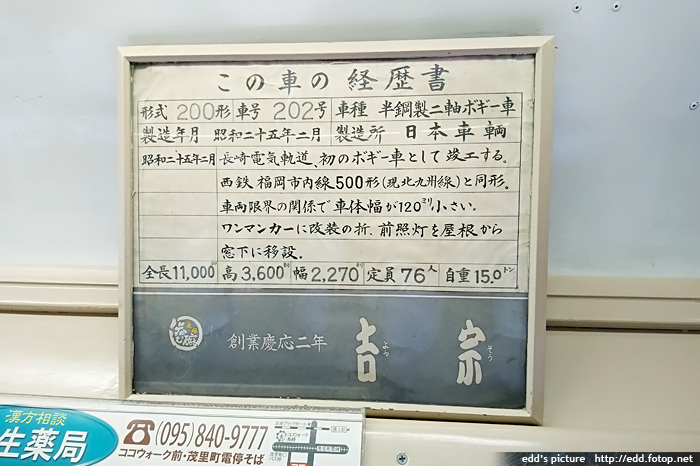 この車の経歴書
形式 200形 車号 202号 車種 半鋼製二軸ボギー車
製造年月 昭和二十五年二月 製造所 日本車輌
昭和二十五年二月 長崎電気軌道、初のボギー車として竣工する。
西鉄福岡市内線500形(現北九州線)と同形。
車両限界の関係で車体幅が120ミリ小さい。
ワンマンカーに改装の折、前照灯を屋根から
窓下に移設。
全長11,000ミリ 高3,600ミリ 幅2,270ミリ 定員76人 自重15.0トン
創業慶応二年 吉宗
よつ そう
漢方相談
生薬局
☎(095)840-9777
ココウォーク前・茂里町電停そば
ココウォーク
edd's picture http://edd.fotop.net